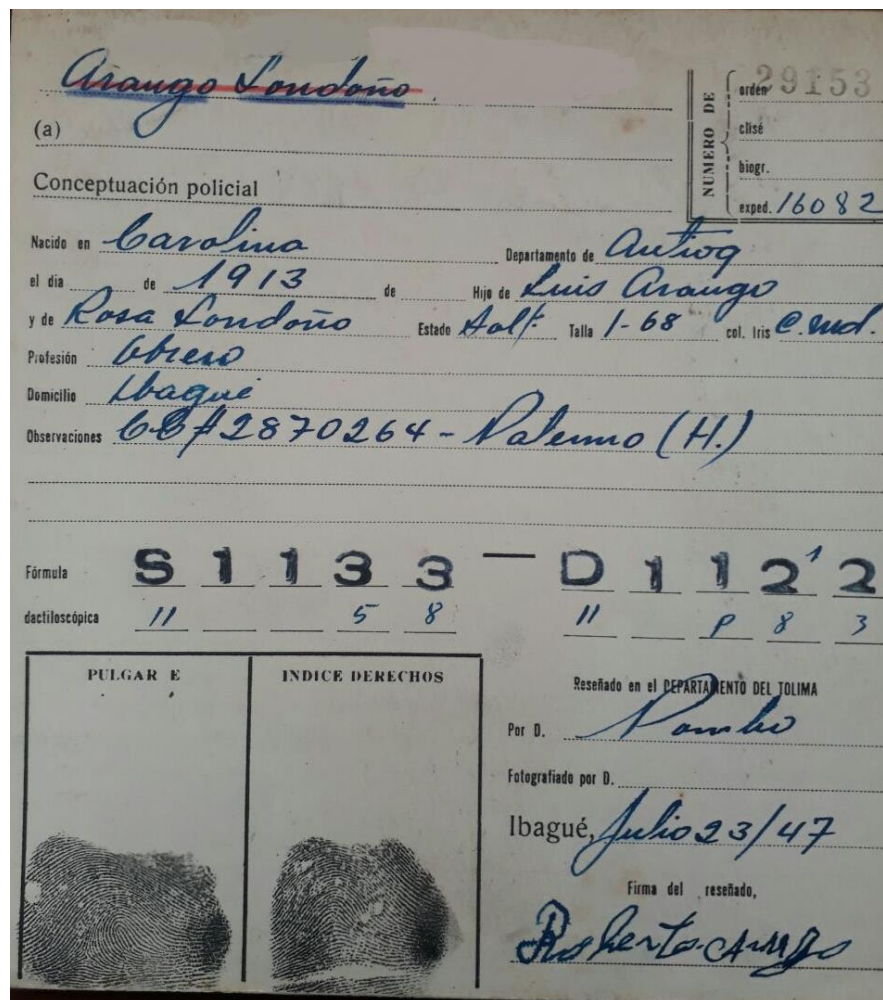 Arango Londoño
NUMERO DE
orden 29153
(a)
clisé
biogr.
Conceptuación policial
exped. 16082
Nacido en Carolina Departamento de Antioq
el dia de 1913 de Hijo de Luis Arango
y de Rosa Londoño Estado Solt. Talla 1-68 col. Iris C. md.
Profesión Obrero
Domicilio Ibagué
Observaciones CC # 2870264 - Palermo (H.)
Fórmula S 1 1 3 3 — D 1 1 2 1 2
dactiloscópica 11 5 8 11 P 8 3
PULGAR E INDICE DERECHOS
Reseñado en el DEPARTAMENTO DEL TOLIMA
Por D.
Fotografiado por D.
Ibagué, Julio 23/47
Firma del reseñado,
Roberto Arango